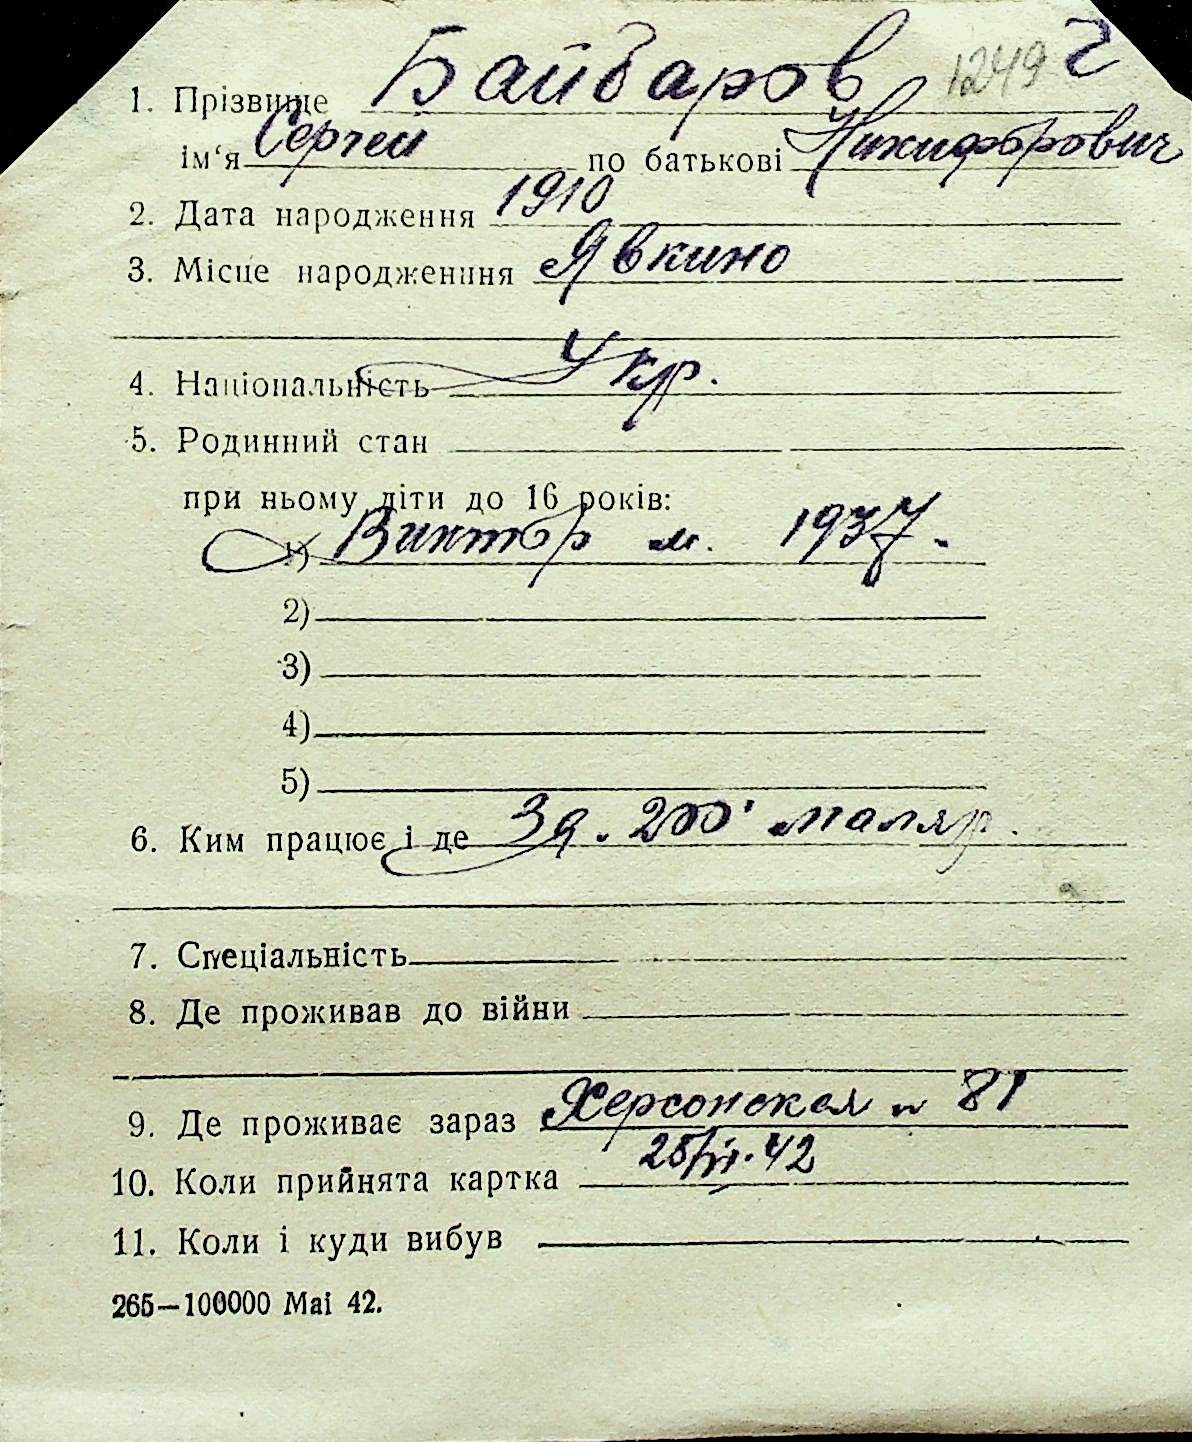 1249 2
1. Прізвище Байбаров
ім‘я Сергей по батькові Никифорович
2. Дата народження 1910
3. Місце народженння Явкино
4. Національність Укр.
5. Родинний стан
при ньому діти до 16 років:
1) Виктор м. 1937.
2)
3)
4)
5)
6. Ким працює і де Зд. 200 маляр.
7. Спеціальність
8. Де проживав до війни
9. Де проживає зараз Херсонская № 81
10. Коли прийнята картка 25/VI.42
11. Коли і куди вибув
265—100000 Mai 42.